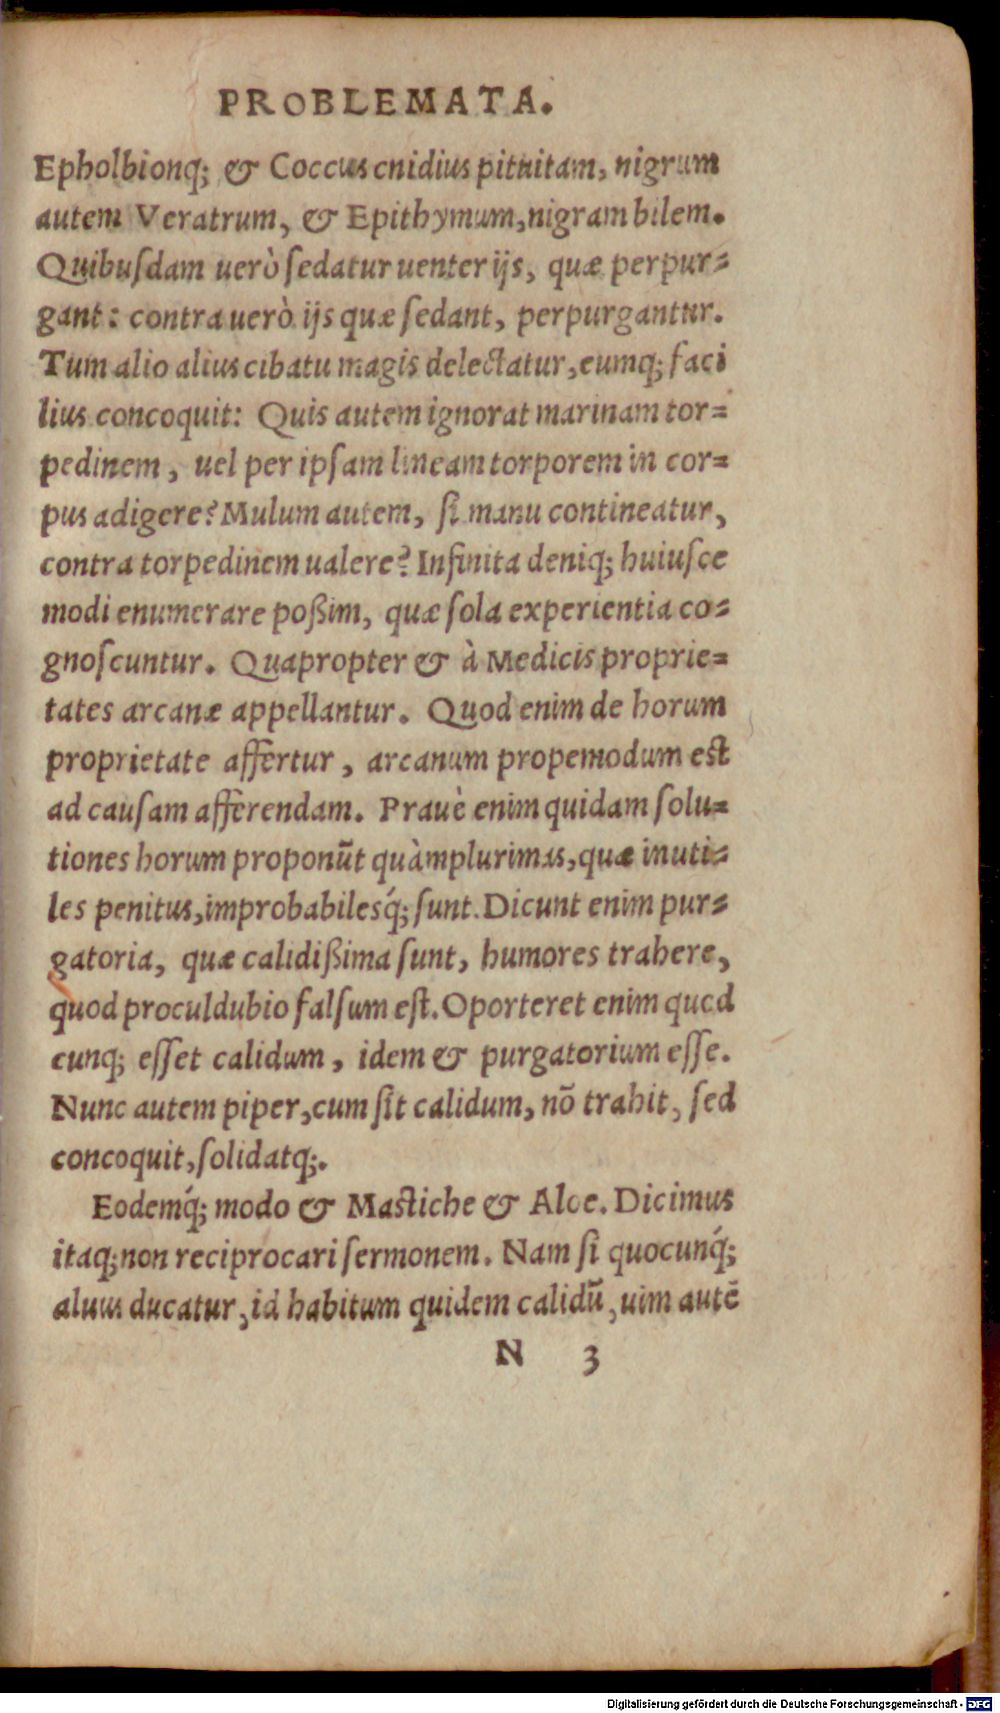 PROBLEMATA.
Epholbionq́; & Coccus cnidius pituitam, nigrum
autem Veratrum, & Epithymum, nigram bilem.
Quibuſdam uerò ſedatur uenter ijs, quæ perpur⸗
gant: contra uerò ijs quæ ſedant, perpurgantur.
Tum alio alius cibatu magis delectatur, eumq; faci
lius concoquit: Quis autem ignorat marinam tor⸗
pedinem, uel per ipſam lineam torporem in cor⸗
pus adigere? Mulum autem, ſi manu contineatur,
contra torpedinem ualere? Infinita deniq; huiuſce
modi enumerare poßim, quæ ſola experientia co⸗
gnoſcuntur. Quapropter & à Medicis proprie⸗
tates arcanæ appellantur. Quod enim de horum
proprietate affertur, arcanum propemodum est
ad cauſam afferendam. Prauè enim quidam ſolu⸗
tiones horum proponūt quàmplurimas, quæ inuti⸗
les penitus, improbabilesq́; ſunt. Dicunt enim pur⸗
gatoria, quæ calidißima ſunt, humores trahere,
quod proculdubio falſum eſt. Oporteret enim quod
cunq; eſſet calidum, idem & purgatorium eſſe.
Nunc autem piper, cum ſit calidum, nō trahit, ſed
concoquit, ſolidatq;.
Eodemq́; modo & Mastiche & Aloe. Dicimus
itaq; non reciprocari ſermonem. Nam ſi quocunq́;
aluus ducatur, id habitum quidem calidū, uim autē
N 3
Digitalisierung gefördert durch die Deutsche Forschungsgemeinschaft - DFG